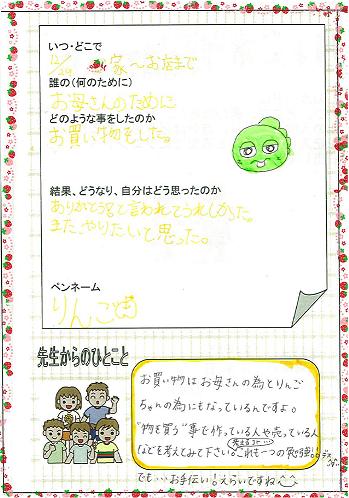 いつ・どこで
12/29 家〜お店まで
誰の(何のために)
お母さんのために
どのような事をしたのか
お買い物をした。
結果、どうなり、自分はどう思ったのか
ありがとうって言われてうれしかった。
また、やりたいと思った。
ペンネーム
りんご
先生からのひとこと
お買い物はお母さんの為とりんご
ちゃんの為にもなっているんですよ。
"物を買う"事で作っている人や売っている人
などを考えてみて下さい。これも一つの勉強!!
でも…お手伝い!えらいですね